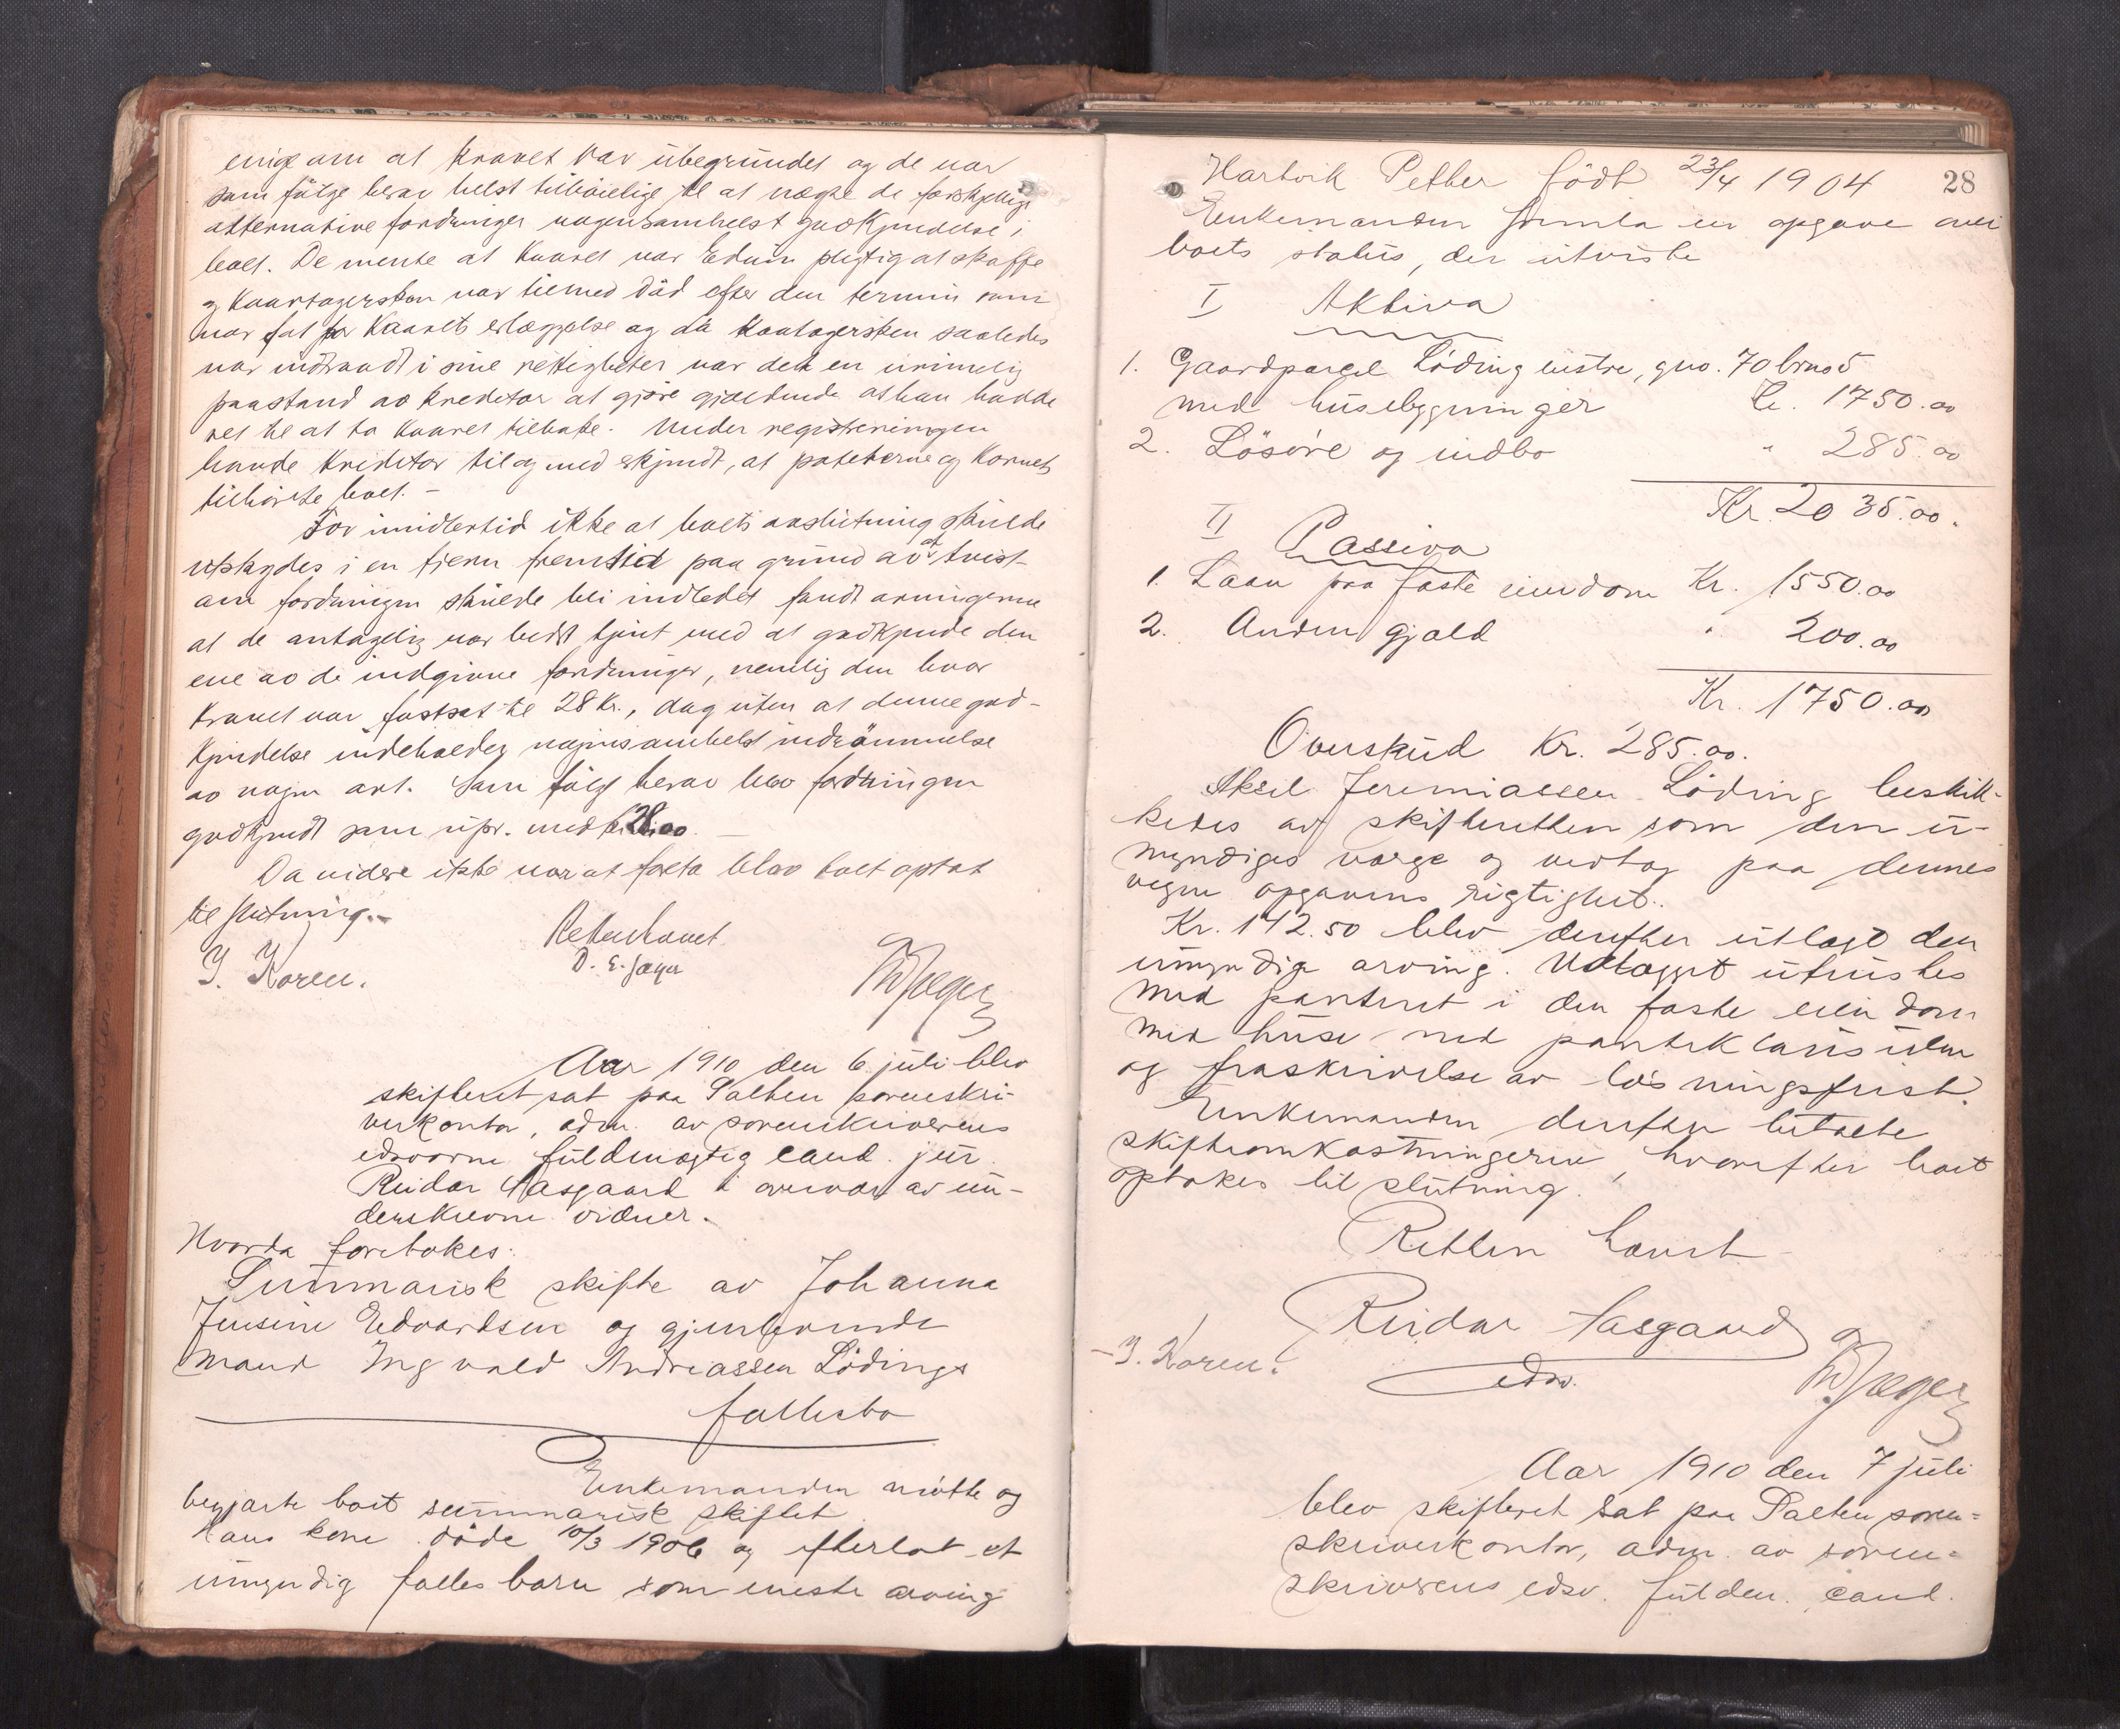 enige om at kravet var ubegrundet og de var
som følge herav helst tilbøielige til at nægte de forskjellige
alternative fordringer nogensomhelst godkjendelse i
boet. De mente at kaaret var Edvin pligtig at skaffe
og kaartagersken var tilmed død efter den termin som
var sat for kaarets erlæggelse og da kaartagersken saaledes
var indtraadt i sine rettigheter var det en urimelig
paastand av kreditor at gjøre gjældende at han hadde
ret til at ta kaaret tilbake. Under registreringen
havde kreditor til og med erkjendt, at poteterne og kornet
tilhørte boet. -
For imidlertid ikke at boets avslutning skulde
utskydes i en fjern fremtid paa grund av at tvist
om fordringen skulde bli indledet fandt arvingerne
at de antagelig var bedst tjent med at godkjende den
ene av de indgivne fordringer, nemlig den hvor
kravet var fastsat til 28 Kr., dog uten at denne god-
kjendelse indeholder nogensomhelst indrømmelse
av nogen art. Som følge herav blev fordringen
godkjendt som upr. med kr 28.00.
Da videre ikke var at foreta blev boet optat
til slutning.-
Retten hævet
J. Koren. D. E. Jæger Jæger
Aar 1910 den 6 juli blev
skifteret sat paa Salten sorenskri-
verkontor, adm. av sorenskriverens
edsvorne fuldmægtig cand. jur.
Reidar Aasgaard i overvær av un-
derskrevne vidner.
Hvorda foretokes:
Summarisk skifte av Johanna
Jensine Edvardsen og gjenlevende
mand Ingvald Andreassen Lødings
fællesbo
Enkemanden møtte og
begjærte boet summarisk skiftet.
Hans kone døde 10/3 1906 og efterlot et
umyndig fællesbarn som eneste arving
28
Hartvik Petter født 23/4 1904
Enkemanden fremla en opgave over
boets status, der utviste
I Aktiva
1. Gaardparcel Løding vestre, gno. 70 brno 5
med husebygninger Kr. 1750.00
2. Løsøre og indbo " 285.00
Kr. 2035.00.
II Passiva
1. Laan paa faste eiendom Kr. 1550.00
2. Anden gjæld " 200.00
Kr. 1750.00
Overskud Kr. 285.00.
Aksel Jeremiassen Løding beskik-
kedes av skifteretten som den u-
myndiges værge og vedtog paa dennes
vegne opgavens rigtighet.
Kr. 142.50 blev derefter utlagt den
umyndige arving. Utlægget utrustes
med panteret i den faste eiendom
med huse med panteklausulen
og fraskrivelse av løsningsfrist.
Enkemanden derefter betalte
skifteomkostningerne, hvorefter boet
optokes til slutning.
Retten hævet
Reidar Aasgaard
- J. Koren. edsv. Jæger
Aar 1910 den 7 juli
blev skifteret sat paa Salten soren-
skriverkontor, adm. av soren-
skriverens edsv. fuldm. cand.